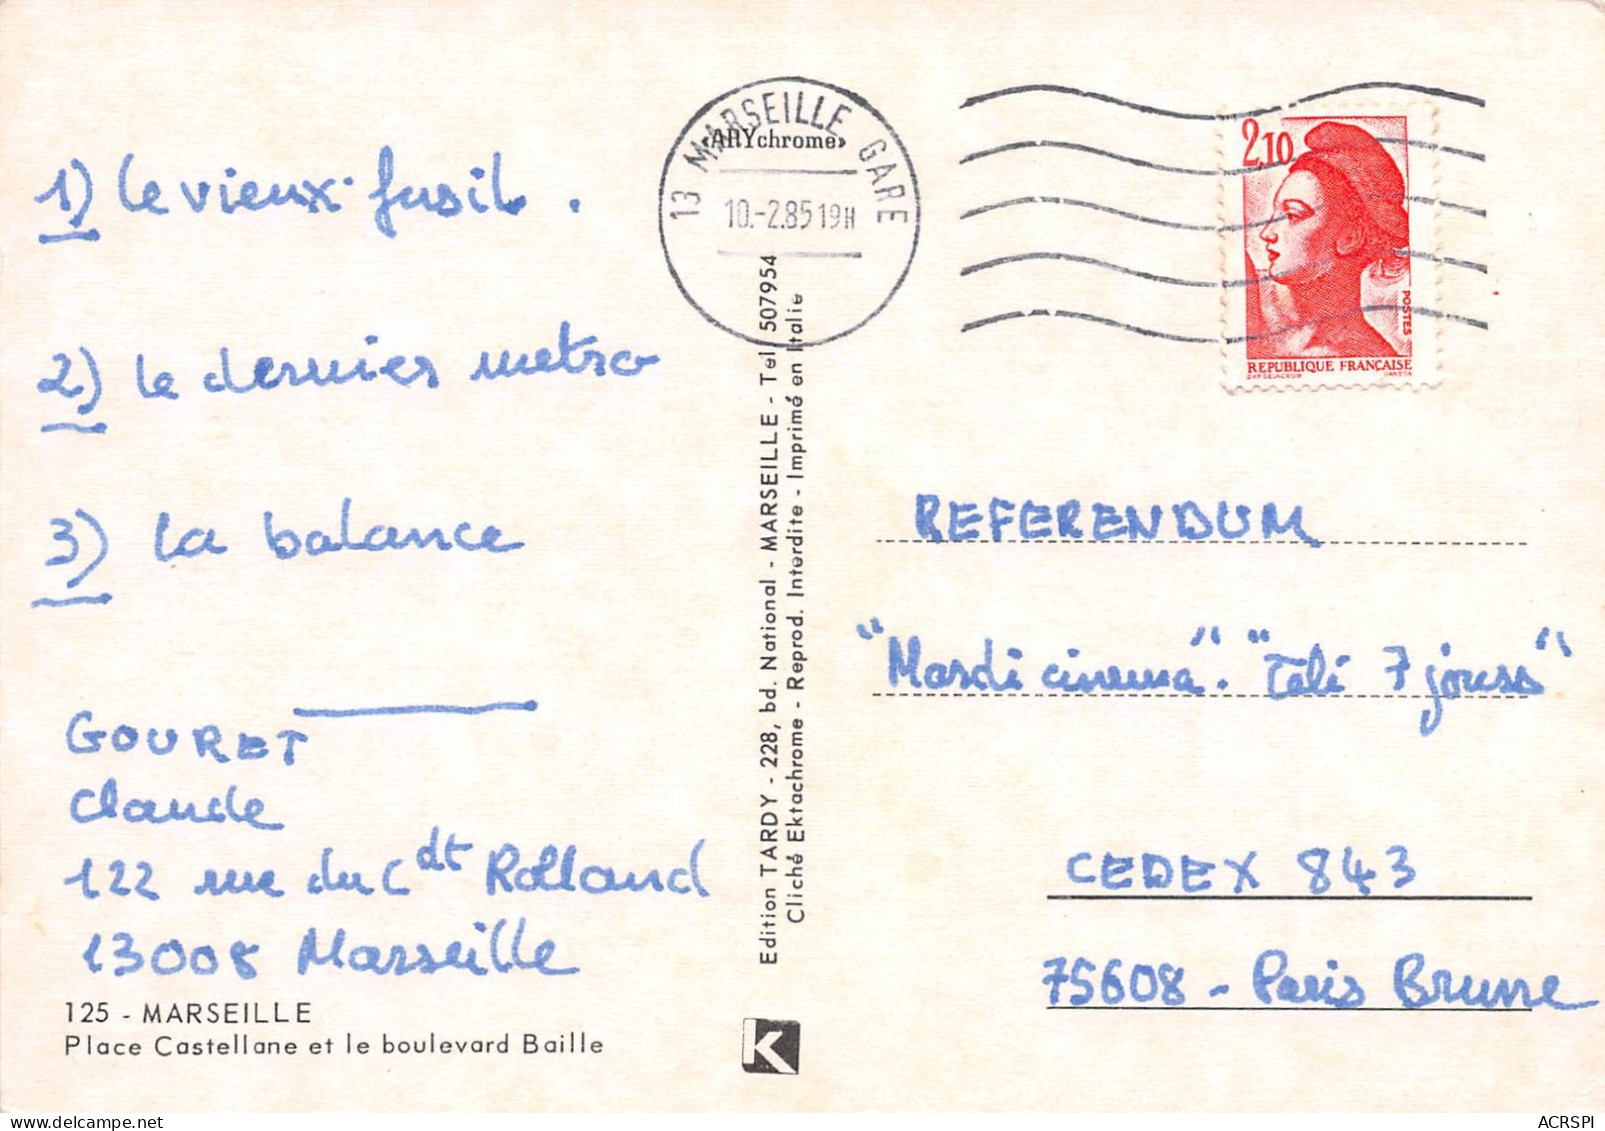 1) le vieux fusil.
2) le dernier metro
3) la balance
GOURET
Claude
122 rue du Cdt Rolland
13008 Marseille
125 - MARSEILLE
Place Castellane et le boulevard Baille
«ARYchrome»
13 MARSEILLE GARE
10.-2.85 19H
Edition TARDY - 228, bd. National - MARSEILLE - Tel 507954
Cliché Ektachrome - Reprod. Interdite - Imprimé en Italie
K
2,10
POSTES
REPUBLIQUE FRANÇAISE
REFERENDUM
"Mardi cinema". "Télé 7 jours"
CEDEX 843
75608 - Paris Brune
ACRSPI